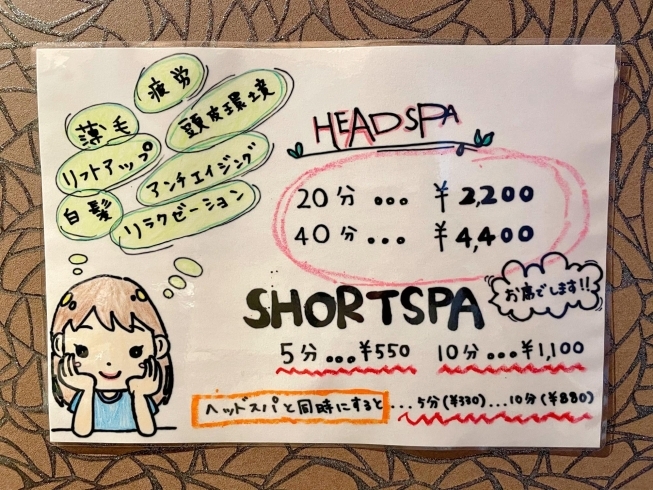 疲労
薄毛
頭皮環境
リフトアップ
アンチエイジング
白髪
リラクゼーション
HEADSPA
20分...¥2,200
40分...¥4,400
SHORTSPA
お席でします!!
5分...¥550 10分...¥1,100
ヘッドスパと同時にすると...5分(¥330)...10分(¥880)